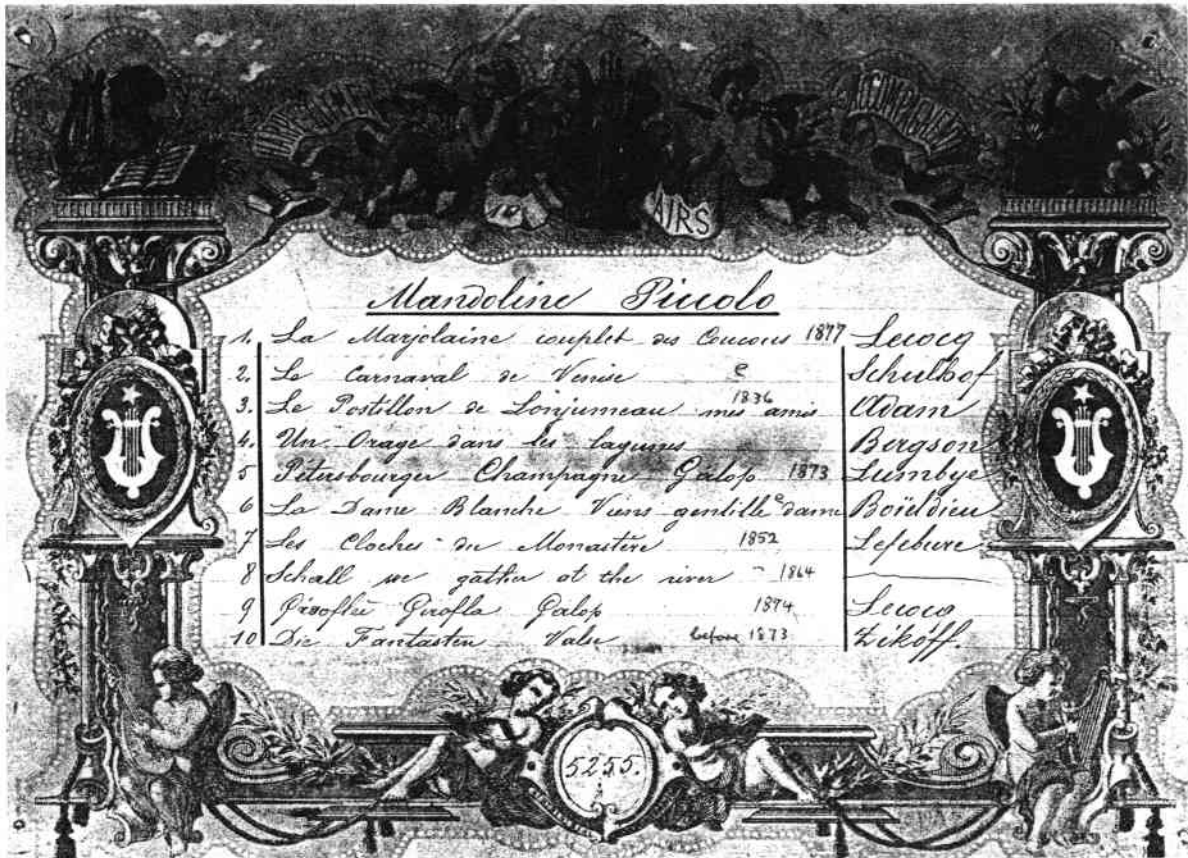 HARPE
ACCOMPAGNEMENT
AIRS
Mandoline Piccolo
1. La Marjolaine couplet des Coucous 1877 Lecocq
2. Le Carnaval de Venise Schulhof
3. Le Postillon de Lonjumeau 1836 mes amis Adam
4. Un Orage dans les lagunes Bergson
5 Petersbourger Champagne Galop 1873 Lumbye
6 La Dame Blanche Viens gentille dame Boïeldieu
7 Les Cloches du Monastère 1852 Lefebure
8 Schall we gather at the river 1864
9 Giroflée Girofla Galop 1874 Lecocq
10 Die Fantasten Valse before 1873 Zikoff.
5255.